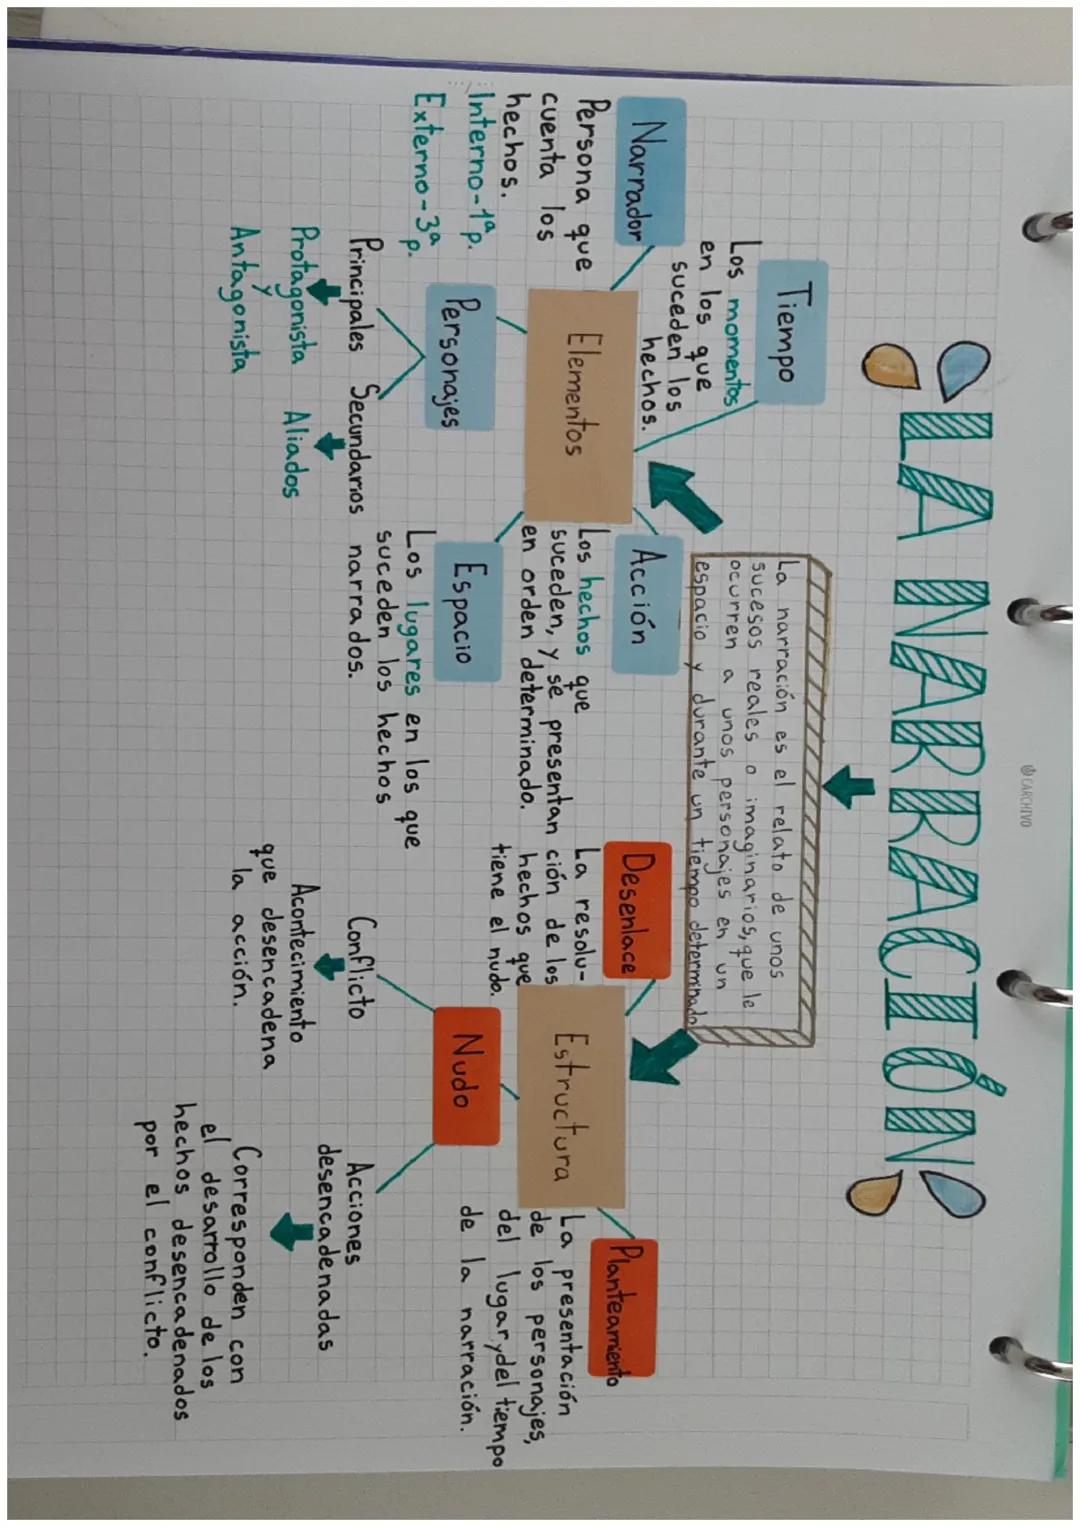 CARCHIVO
LA NARRACIÓN
La narración es el relato de unos
sucesos reales o imaginarios, que le
ocurren a unos personajes en un
espacio y durante un tiempo determinado
Elementos
Tiempo
Los momentos
en los que
suceden los
hechos.
Narrador
Persona que
cuenta los
hechos.
Interno-1ª p.
Externo-3ª p.
Acción
Los hechos que
suceden, y se presentan
en orden determinado.
Personajes
Principales
Protagonista
y
Antagonista
Secundarios
Aliados
Espacio
Los lugares en los que
suceden los hechos
narrados.
Estructura
Desenlace
La resolu-
ción de los
hechos que
tiene el nudo.
Planteamiento
La presentación
de los personajes,
del lugar, y del tiempo
de la narración.
Nudo
Conflicto
Acontecimiento
que desencadena
la acción.
Acciones
desencadenadas
Corresponden con
el desarrollo de los
hechos desencadenados
por el conflicto.